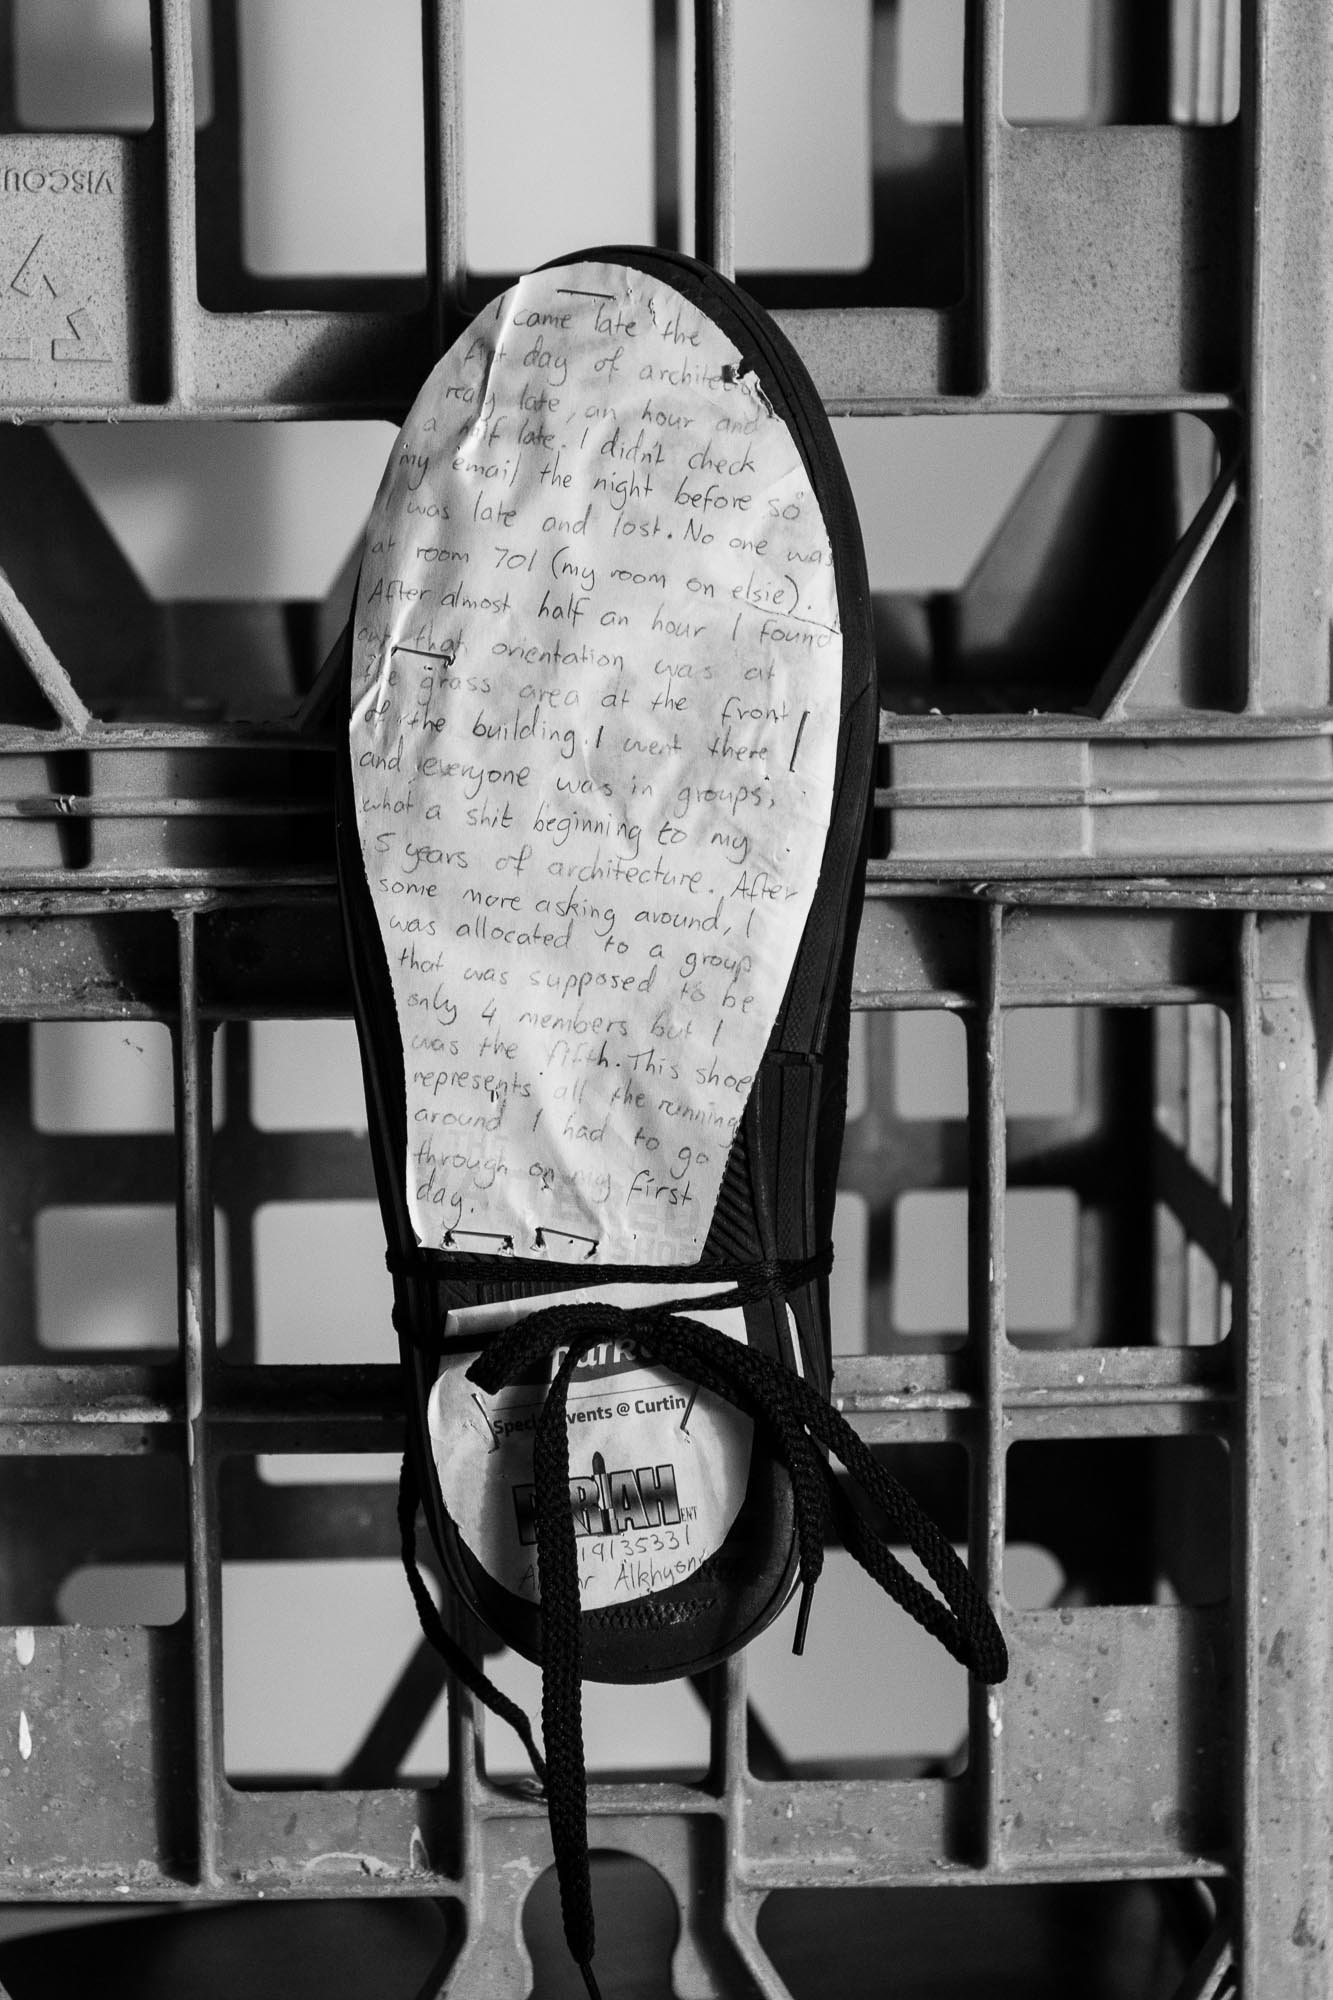 VISCOU
I came late the
first day of architecture
really late, an hour and
a half late. I didn't check
my email the night before so
I was late and lost. No one was
at room 701 (my room on elsie).
After almost half an hour I found
out that orientation was at
the grass area at the front
of the building. I went there
and everyone was in groups,
what a shit beginning to my
5 years of architecture. After
some more asking around, I
was allocated to a group
that was supposed to be
only 4 members but I
was the fifth. This shoe
represents all the running
around I had to go
through on my first
day.
SHOE
Special Events @ Curtin
PARIAH
ENT
19135331
Alkhyon